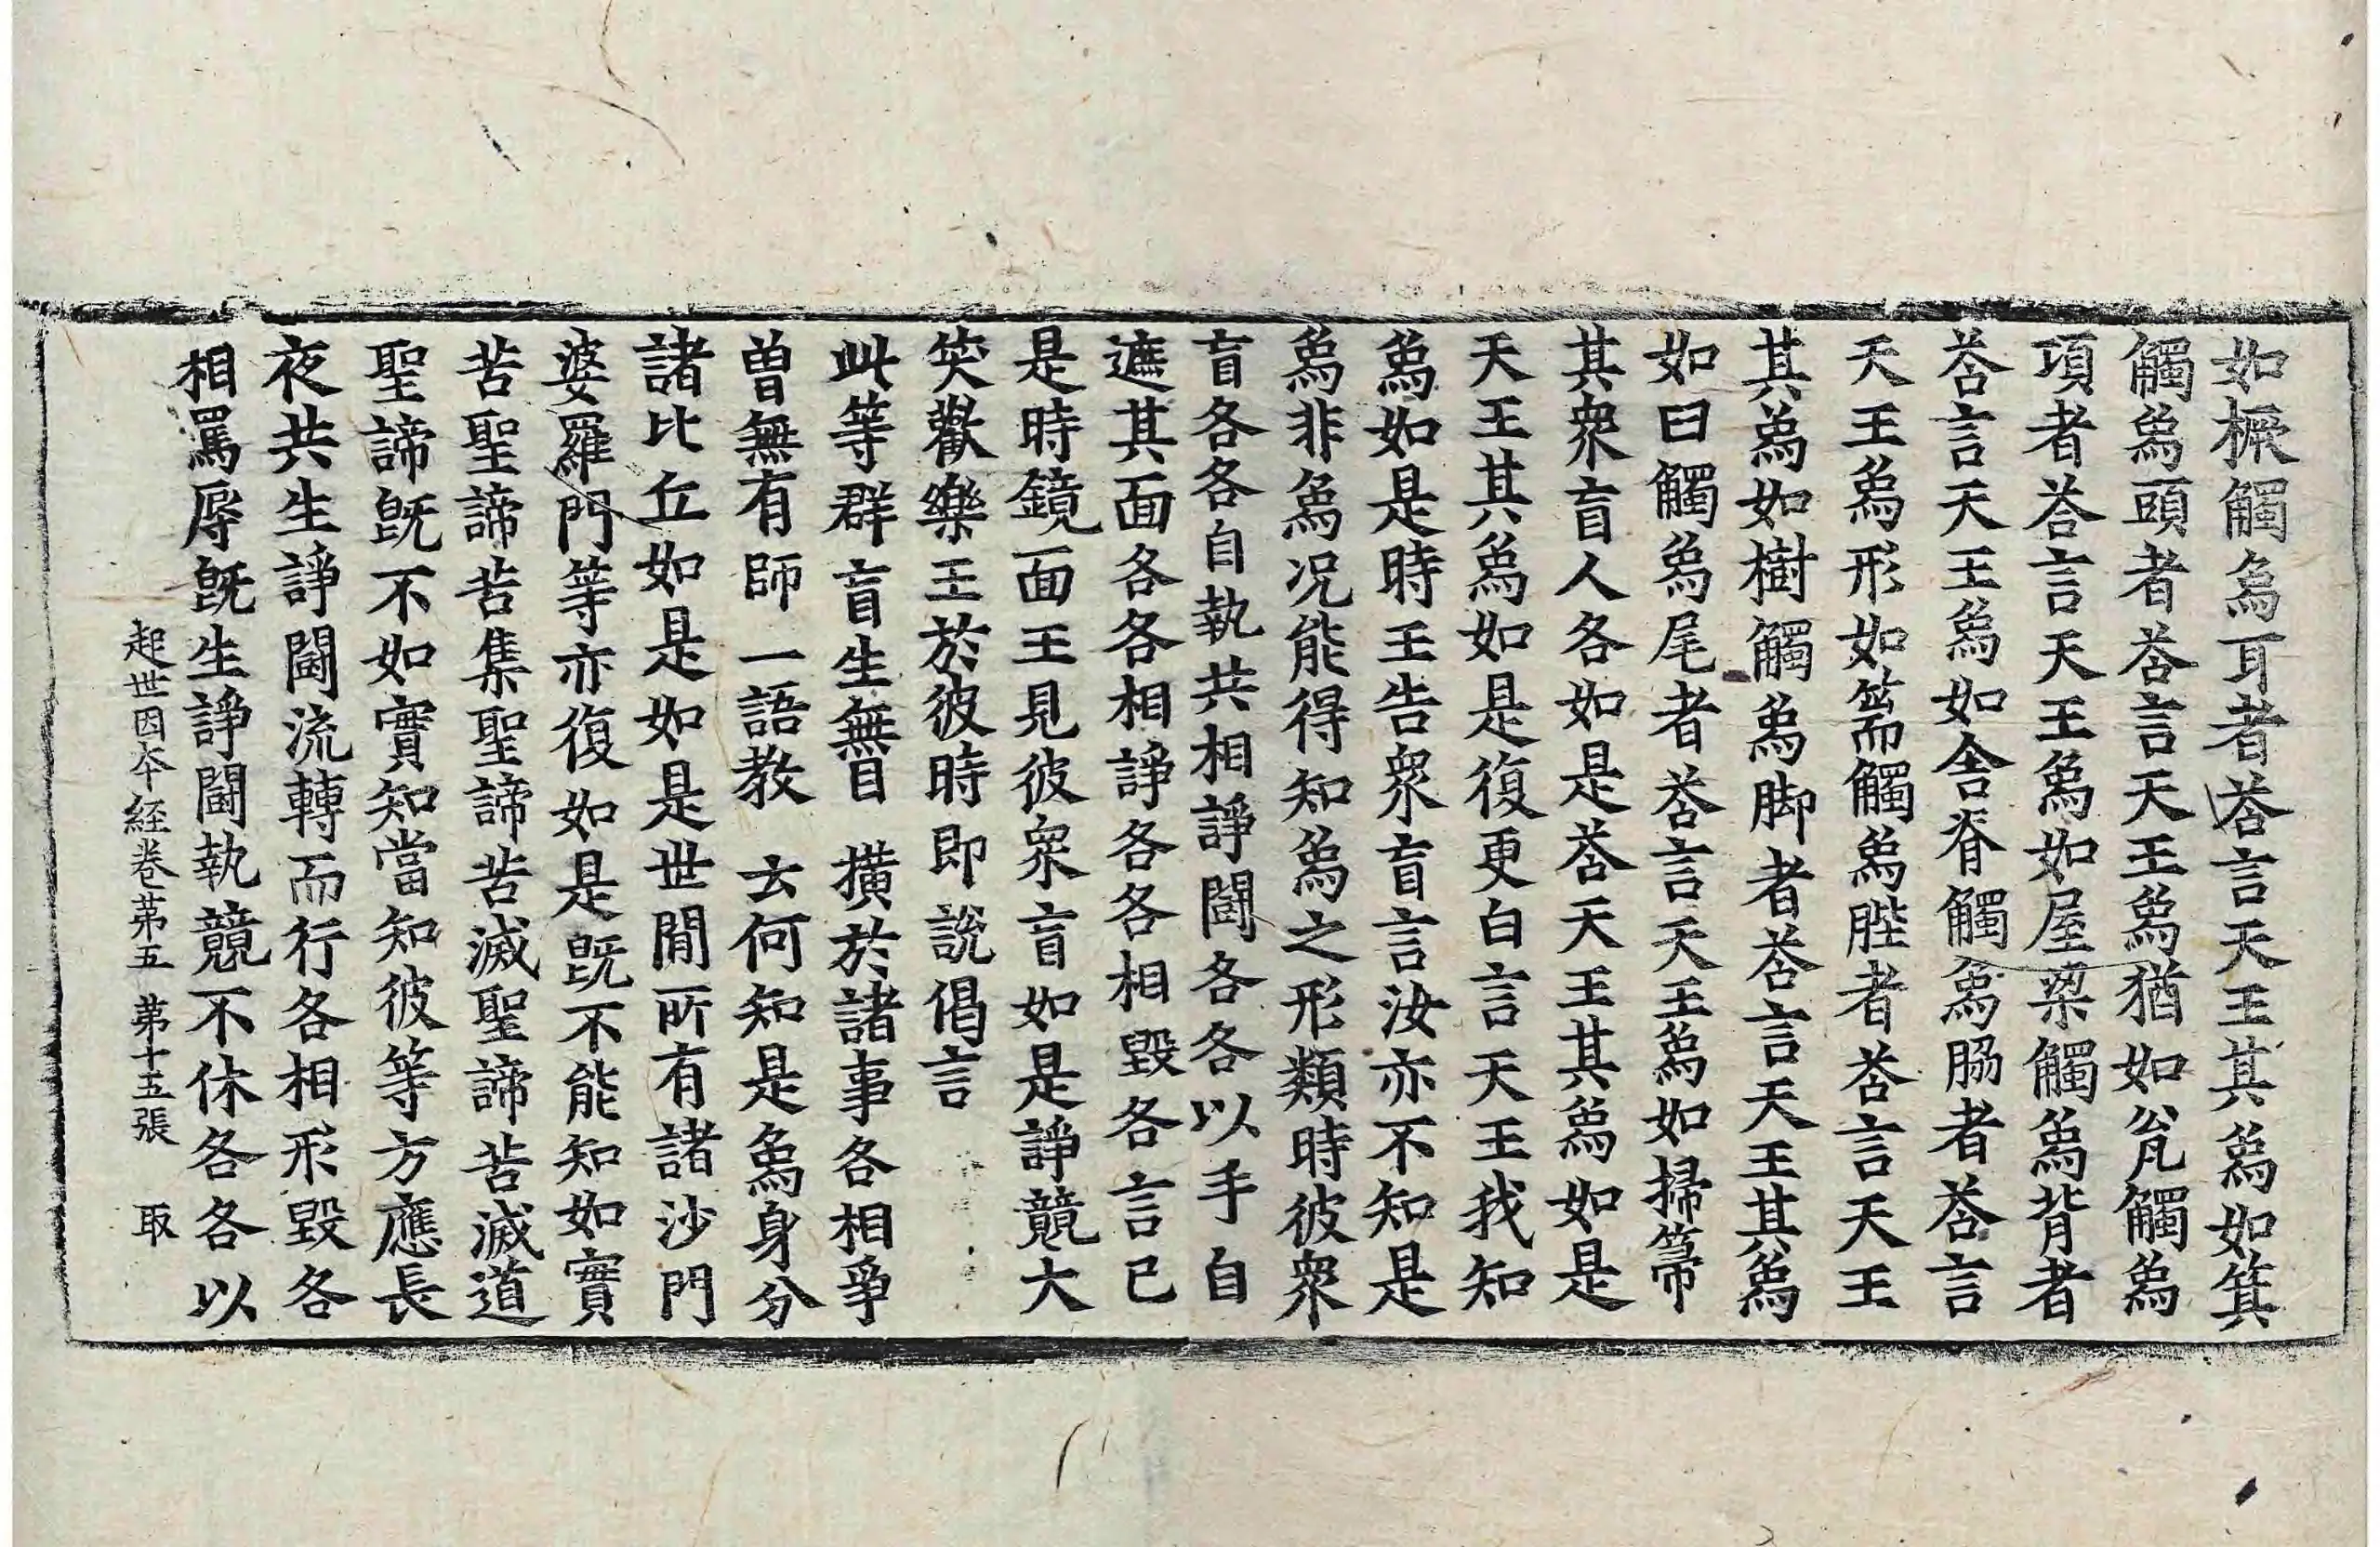 如橛觸象耳者荅言天王其象如箕
觸象頭者荅言天王象猶如瓮觸象
項者荅言天王象如屋梁觸象背者
荅言天王象如舍脊觸象脇者荅言
天王象形如𥫱觸象䏶者荅言天王
其象如樹觸象脚者荅言天王其象
如臼觸象尾者荅言天王象如掃箒
其衆盲人各如是荅天王其象如是
天王其象如是復更白言天王我知
象如是時王告衆盲言汝亦不知是
象非象况能得知象之形類時彼衆
盲各各自執共相諍鬪各各以手自
遮其面各各相諍各各相毀各言已
是時鏡面王見彼衆盲如是諍競大
笑歡樂王於彼時即說偈言
此等群盲生無目 橫於諸事各相爭
曾無有師一語教 云何知是象身分
諸比丘如是如是世間所有諸沙門
婆羅門等亦復如是旣不能知如實
苦聖諦苦集聖諦苦滅聖諦苦滅道
聖諦旣不如實知當知彼等方應長
夜共生諍鬪流轉而行各相形毀各
相罵辱旣生諍鬪執競不休各各以
起世因本經卷苐五 苐十五張 取